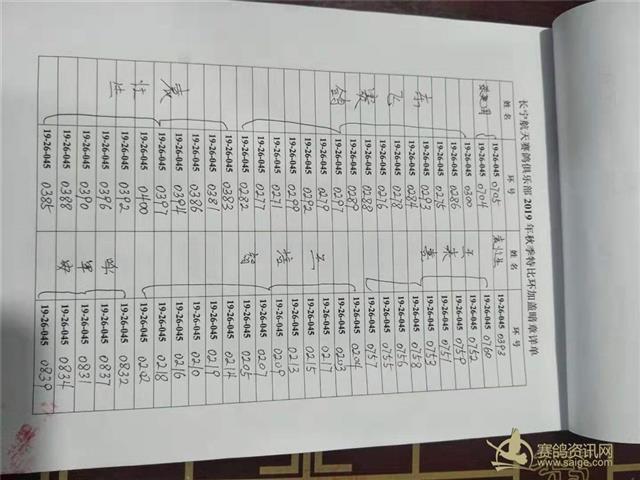 长宁航天赛鸽俱乐部 2019 年秋季特比环加盖暗章详单
姓名 环号 姓名 环号
19-26-045 0705 袁壮生 19-26-045 0393
19-26-045 0704 19-26-045 0760
19-26-045 0300 19-26-045 0752
19-26-045 0286 19-26-045 0759
19-26-045 0275 19-26-045 0751
19-26-045 0293 19-26-045 0753
19-26-045 0284 19-26-045 0758
19-26-045 0278 19-26-045 0756
19-26-045 0276 19-26-045 0755
19-26-045 0288 19-26-045 0757
19-26-045 0289 19-26-045 0204
19-26-045 0297 19-26-045 0203
19-26-045 0279 19-26-045 0217
19-26-045 0292 19-26-045 0215
19-26-045 0299 19-26-045 0213
19-26-045 0271 19-26-045 0209
19-26-045 0277 19-26-045 0207
19-26-045 0282 19-26-045 0205
19-26-045 0383 19-26-045 0214
袁壮生 19-26-045 0381 19-26-045 0219
19-26-045 0386 19-26-045 0210
19-26-045 0394 19-26-045 0216
19-26-045 0397 19-26-045 0218
19-26-045 0400 19-26-045 0202
19-26-045 0392 19-26-045 0832
19-26-045 0396 19-26-045 0837
19-26-045 0390 19-26-045 0831
19-26-045 0388 19-26-045 0834
19-26-045 0385 19-26-045 0839
赛鸽资讯网
www.saige.com